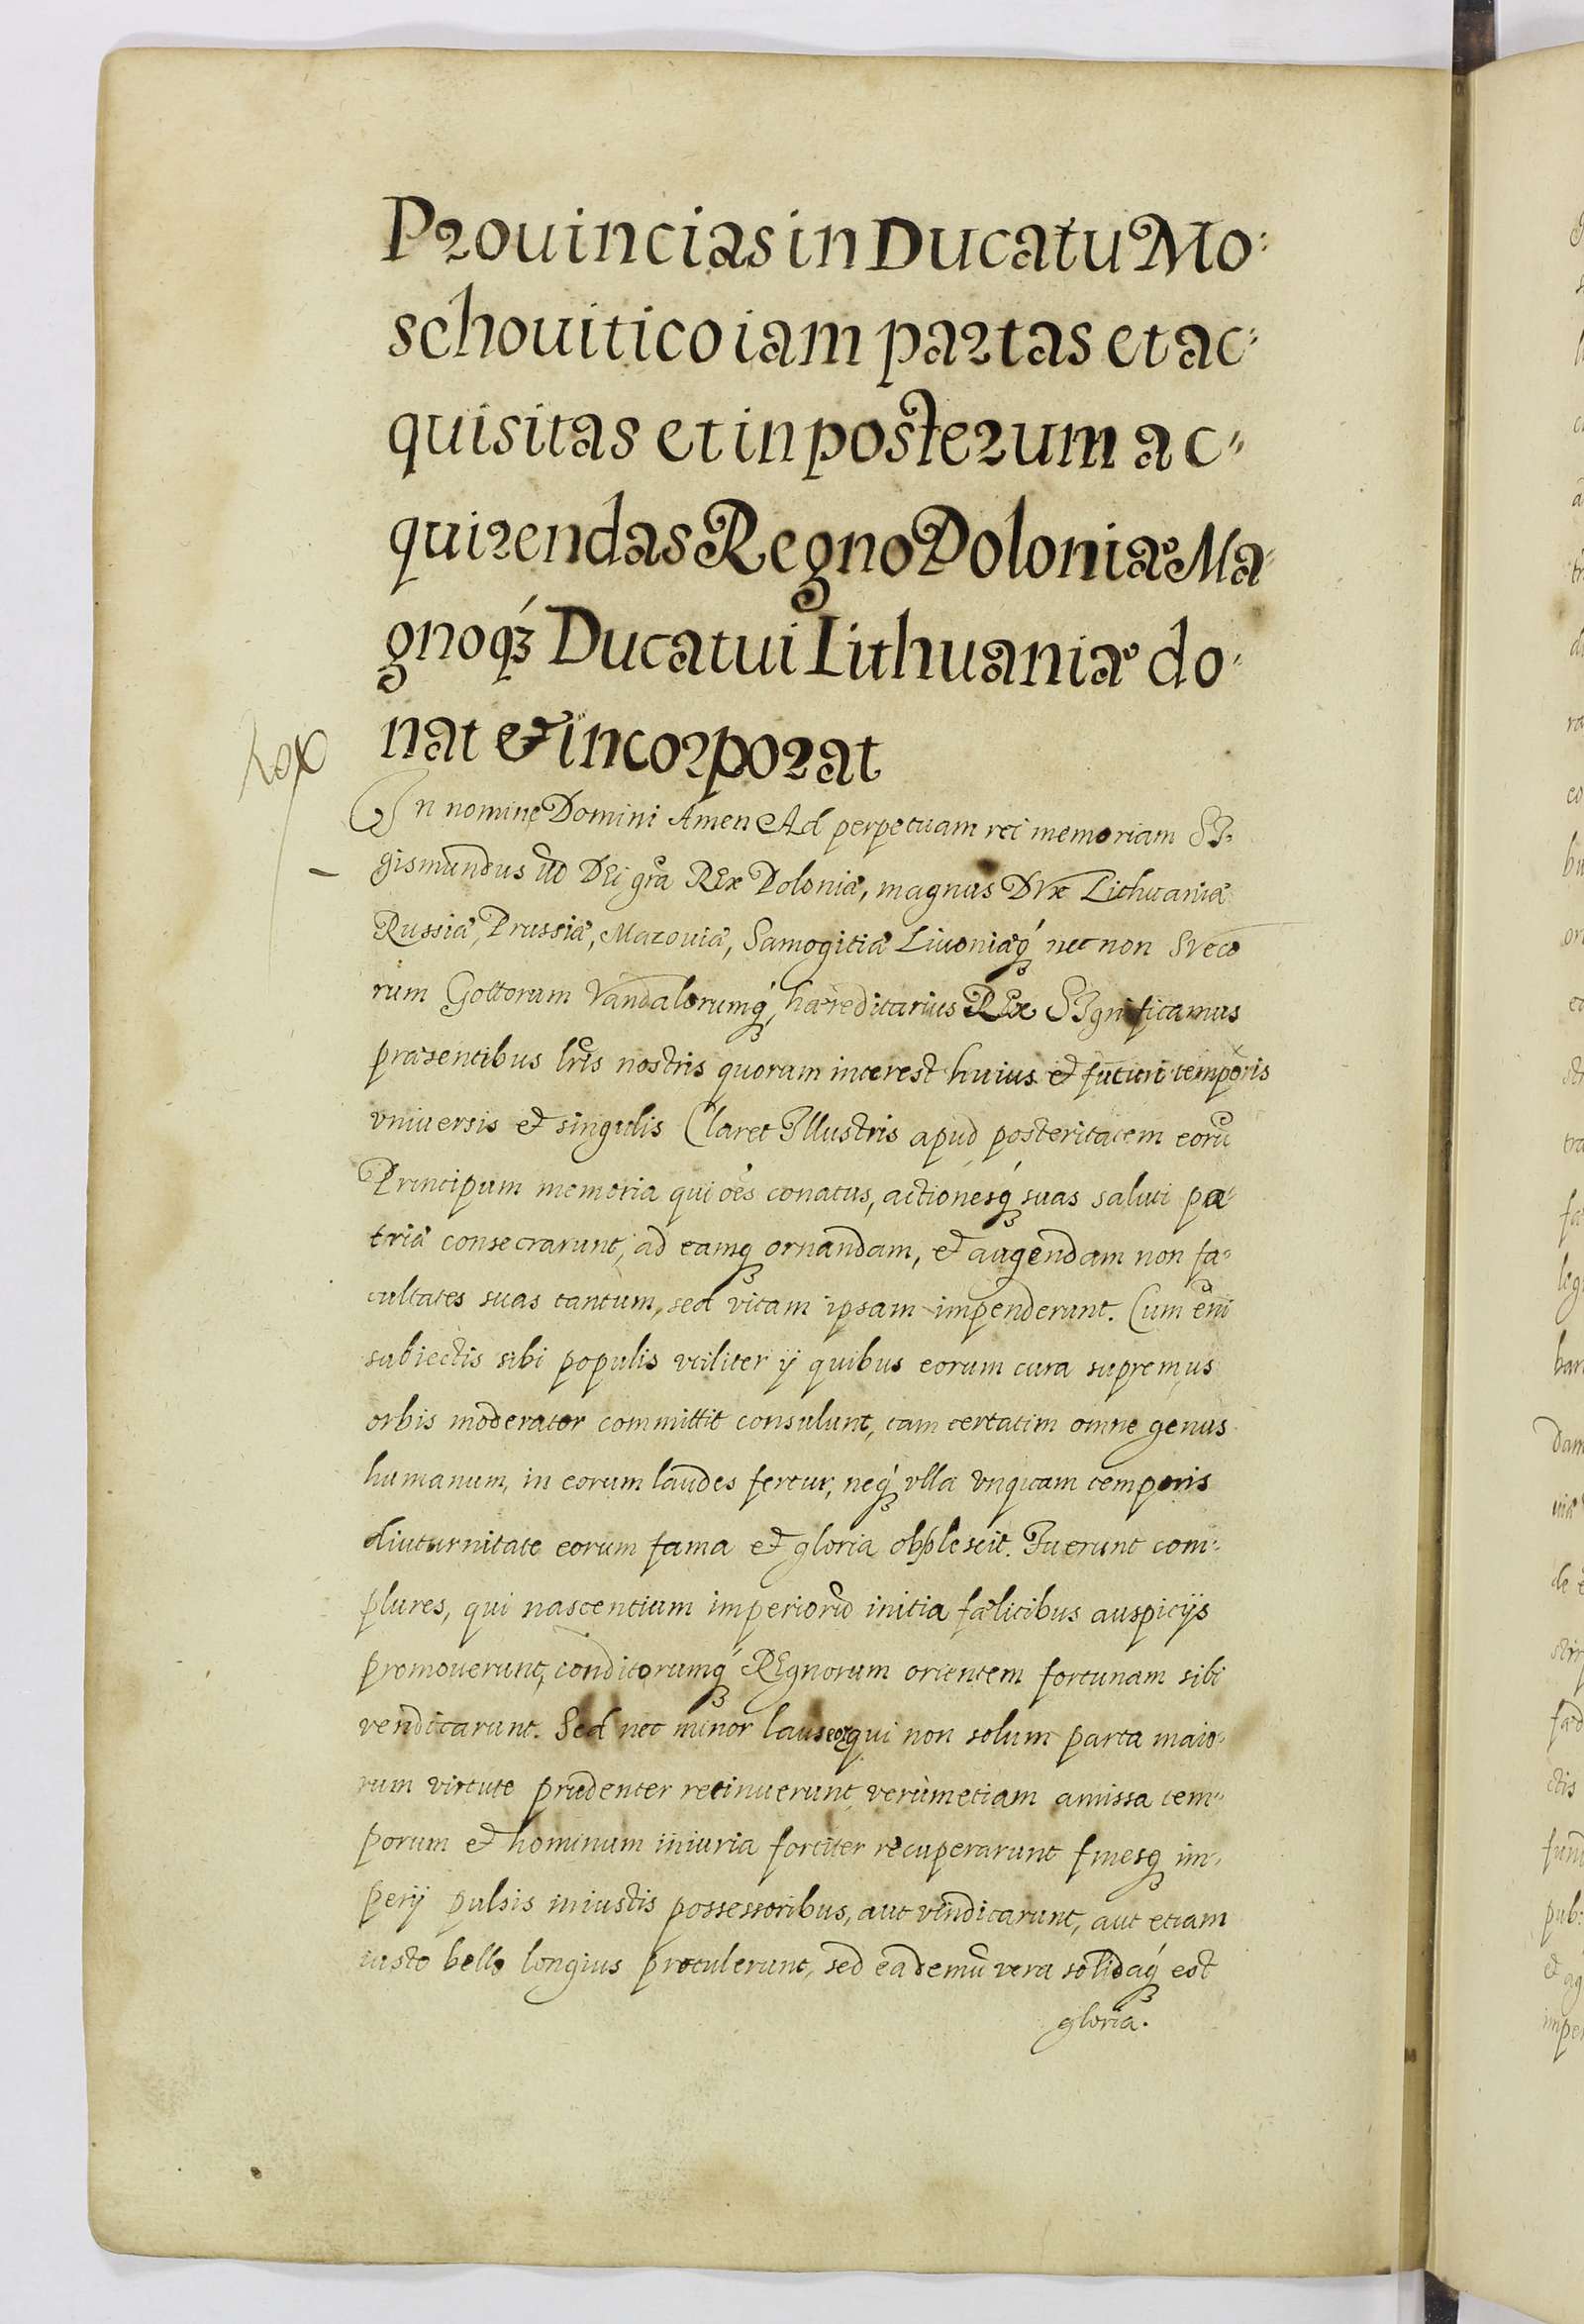 Prouincias in Ducatu Mo:
schouitico iam partas et ac:
quisitas et in posterum ac:
quirendas Regno Poloniæ Ma:
gnoqꝫ Ducatui Lithuaniæ do:
nat & incorporat
In nomine Domini Amen Ad perpetuam rei memoriam SI:
gismundus DEi gra REx Poloniæ, magnus DVx Lithuaniæ
Russiæ, Prussiæ, Mazouiæ, Samogitiæ Liuoniæqꝫ nec non Sveco
rum Gottorum Vandalorumqꝫ, hæreditarius REx SIgnificamus
præsentibus lris nostris quorum interest huius & futuri temporis
vniuersis & singulis Claret Illustris apud posteritatem eorū
Principum memoria qui oēs conatus, actionesqꝫ suas saluti pa:
triæ consecrarunt, ad eamqꝫ ornandam, & augendam non fa:
cultates suas tantum, sed vitam ipsam impenderunt. Cum eni
subiectis sibi populis vtiliter ij quibus eorum cura supremus
orbis moderator committit consulunt, tam certatim omne genus
humanum, in eorum laudes fertur, neqꝫ vlla vnquam temporis
diuturnitate eorum fama & gloria obsolescit. Fuerunt com:
plures, qui nascentium imperiorū initia fælicibus auspicijs
promouerunt, conditorumqꝫ REgnorum orientem fortunam sibi
vendicarunt. Sed nec minor laus eoꝝ qui non solum parta maio:
rum virtute prudenter retinuerunt, verùm etiam amissa tem:
porum & hominum iniuria fortiter recuperarunt finesqꝫ im:
perij pulsis iniustis possessoribus, aut vindicarunt, aut etiam
iusto bello longius protulerunt, sed ea demū vera solidaqꝫ est
gloria.